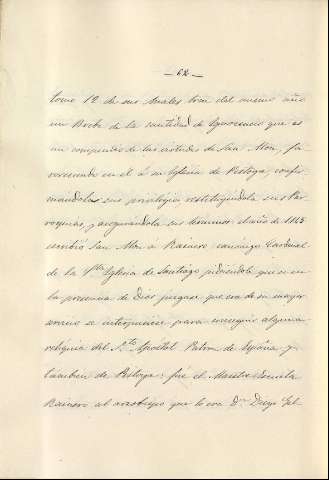 — 62 —
tomo 12 de sus Anales trae del mismo año
un Breve de la santidad de Ynocencio que es
un compendio de las virtudes de San Aton, fa-
voreciendo en él á su Yglesia de Pistoya, confir-
mandola sus privilegios restituyendola sus Par-
roquias, y asegurandola sus terminos. el año de 1145
escribió San Aton á Rainero canonigo Cardenal
de la Sta Yglesia de Santiago pidiendole que si en
la presencia de Dios juzgase que era de su mayor
servicio se interpusiese para conseguir alguna
reliquia del Sto Apostol Patron de España y
tambien de Pistoya: fué el Maestre Escuela
Rainero al arzobispo que lo era Dn Diego Gel